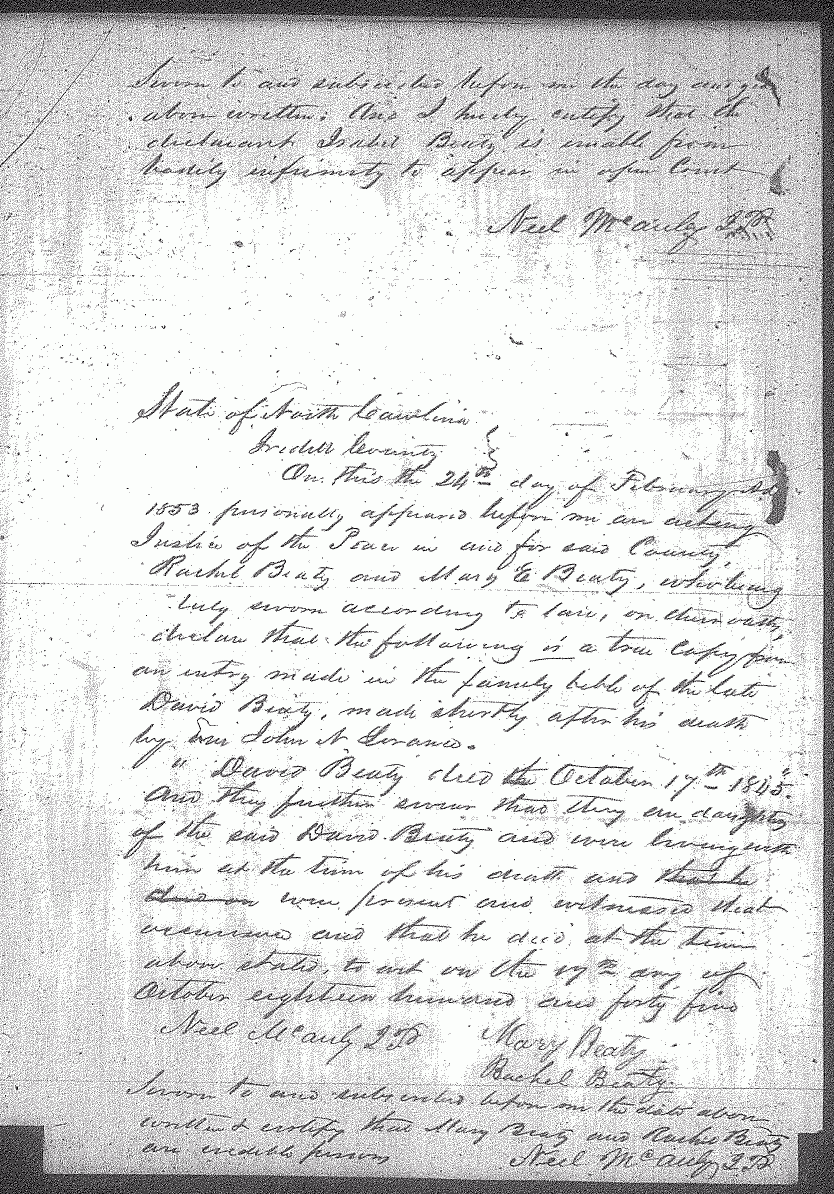 Sworn to and subscribed before me the day and year
above written; And I hereby certify that the
declarant Isabel Beaty is unable from
bodily infirmity to appear in open Court
Neel McAuly JP
State of North Carolina
Iredell County }
On this the 24th day of February AD
1853 personally appeared before me an acting
Justice of the Peace in and for said County
Rachel Beaty and Mary E Beaty, who being
duly sworn according to law, on their oaths,
declare that the following is a true Copy from
an entry made in the family bible of the late
David Beaty, made shortly after his death
by John N
" David Beaty died the October 17th 1845"
And they further swear that they are daughters
of the said David Beaty and were living with
him at the time of his death and that he
died on were present and witnessed that
occurrence and that he died at the time
above stated, to wit on the 17th day of
October eighteen hundred and forty five
Neel McAuly JP Mary Beaty
Rachel Beaty
Sworn to and subscribed before me the date above
written & certify that Mary Beaty and Rachel Beaty
are credible persons
Neel McAuly JP